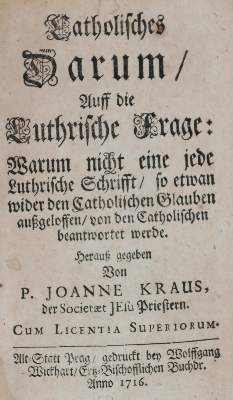 Catholisches
Darum/
Auff die
Luthrische Frage:
Warum nicht eine jede
Luthrische Schrifft/ so etwan
wider den Catholischen Glauben
außgeloffen/ von den Catholischen
beantwortet werde.
Herauß gegeben
Von
P. JOANNE KRAUS,
der Societæt JEsù Priestern.
CUM LICENTIA SUPERIORUM.
Alt-Statt Prag/ gedruckt bey Wolffgang
Wickhart/ Ertz-Bischofflichen Buchdr.
Anno 1716.